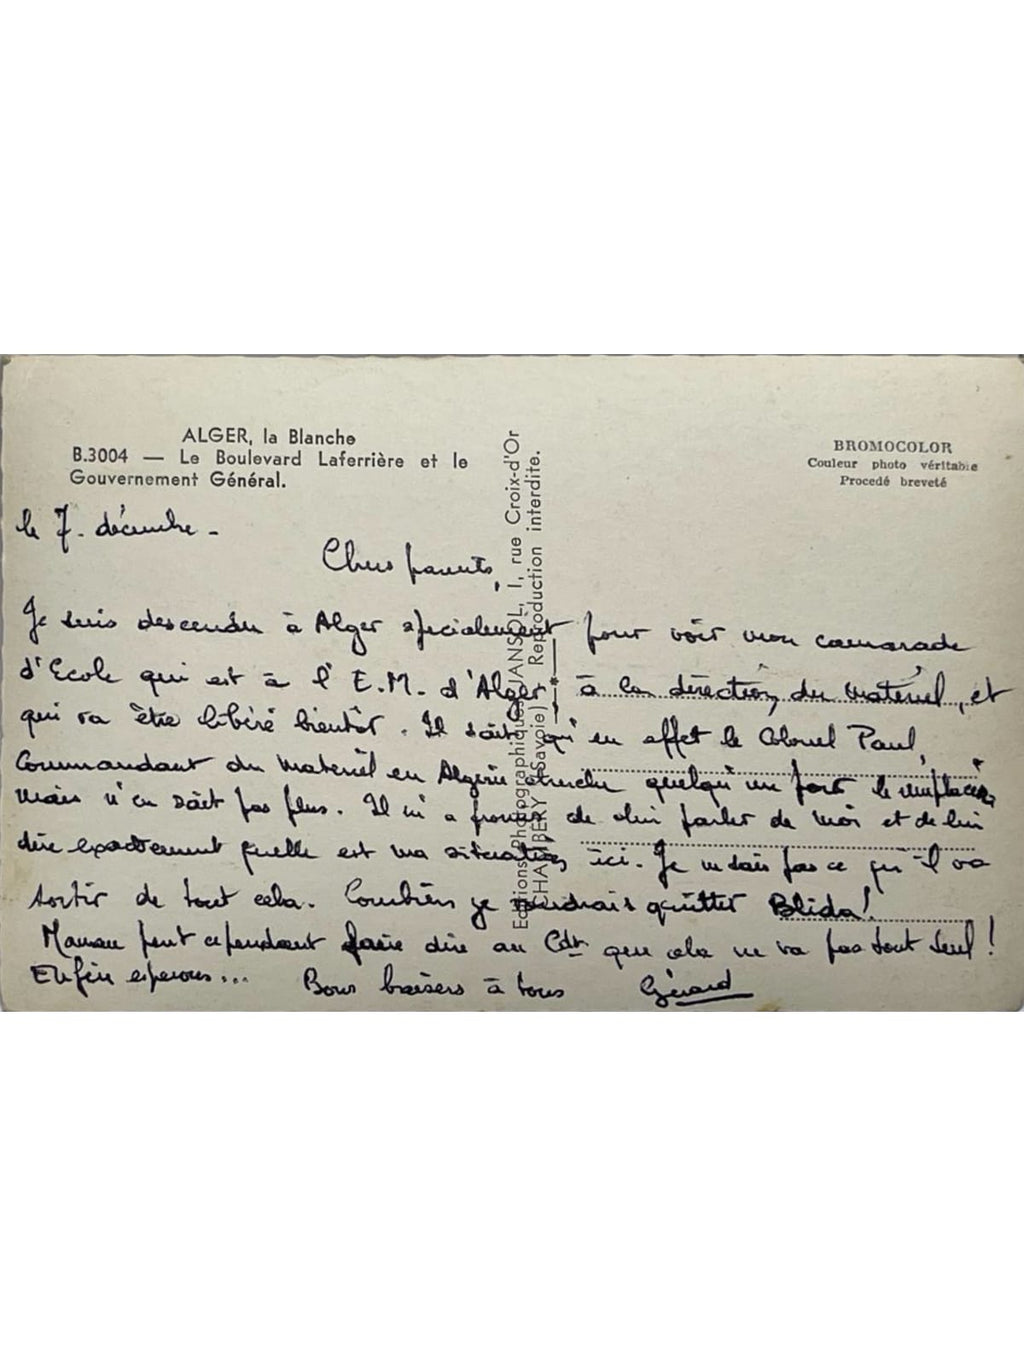 ALGER, la Blanche
B.3004 — Le Boulevard Laferrière et le
Gouvernement Général.
BROMOCOLOR
Couleur photo véritable
Procedé breveté
Editions photographiques JANSOL, 1, rue Croix-d'Or
CHAMBERY (Savoie) Reproduction interdite.
le 7. décembre -
Chers parents,
Je suis descendu à Alger spécialement pour voir mon camarade
d'Ecole qui est à l'E.M. d'Alger à la direction du matériel, et
qui va être libéré bientôt. Il sait qu'en effet le Colonel Paul,
Commandant du matériel en Algérie cherche quelqu'un pour le remplacer,
mais n'en sait pas plus. Il m'a promis de lui parler de moi et de lui
dire exactement quelle est ma situation ici. Je ne sais pas ce qu'il va
sortir de tout cela. Combien je voudrais quitter Blida!
Maman peut cependant faire dire au Cdt que cela ne va pas tout seul!
Enfin espérons... Bons baisers à tous Gérard